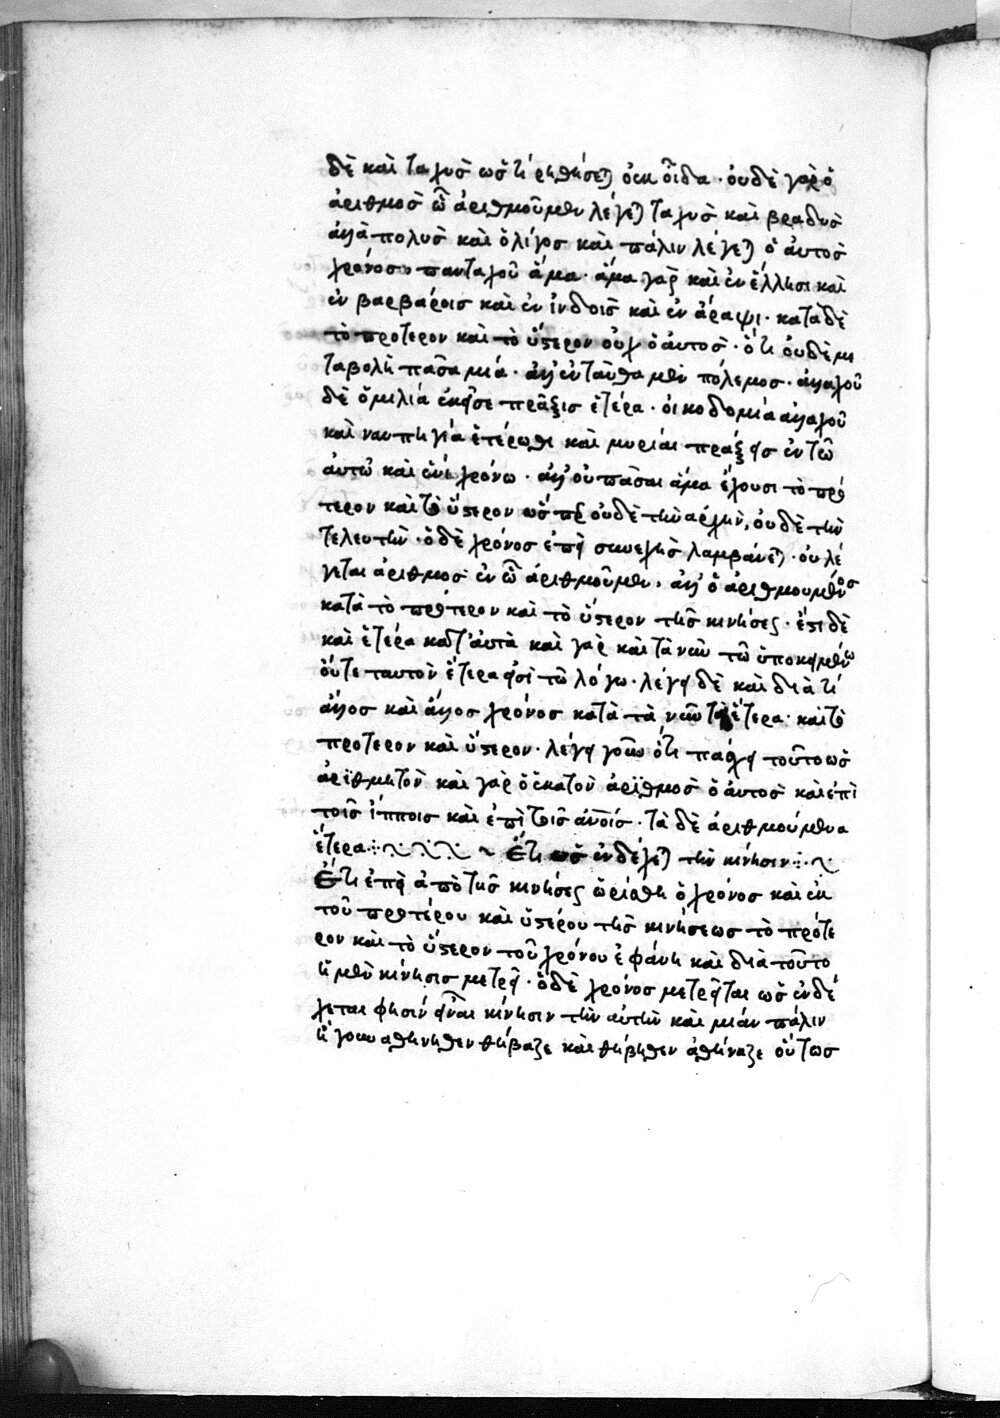 δὲ καὶ ταχὺσ ὡσ τί ῥηθήσεται οὐκ οἶδα · οὐδὲ γὰρ ὁ
ἀριθμοσ ὧ ἀριθμοῦμεν λέγεται ταχὺσ καὶ βραδυσ
ἀλλὰ πολυσ καὶ ὀλίγοσ καὶ πάλιν λέγεται ὁ ἀυτοσ
χρόνοσ πανταχοῦ ἅμα · ἅμα γὰρ καὶ ἐν ἕλλησι καὶ
ἐν βαρβάροισ καὶ ἐν ἰνδοισ καὶ ἐν ἄραψι · κατὰ δὲ
τὸ προτερον καὶ τὸ ὕστερον οὐχ ὁ ἀυτοσ · ὅτι ὀυδὲ με
ταβολὴ πᾶσα μιά · ἀλλ' ἐνταῦθα μὲν πόλεμοσ · ἀλλαχοῦ
δὲ ὁμιλιά ἐκεῖσε πρᾶξισ ἑτέρα · ὀικοδομία ἀλλαχοῦ
καὶ ναυπηγία ἑτέρωθι καὶ μυρίαι πράξεισ ἐν τῶ
ἀυτῶ καὶ ἑνὶ χρόνω · ἀλλ' ὀυ πᾶσαι ἅμα ἔχουσι τὸ πρό
τερον καὶ τὸ ὕστερον ὥσπερ ὀυδὲ τὴν αρχὴν, ὀυδὲ τὴν
τελευτὴν · ὁ δὲ χρόνοσ ἐπεὶ συνεχὴσ λαμβάνεται · ὀυ λέ
γεται ἀριθμοσ ἐν ὧ ἀριθμοῦμεν · ἀλλ' ὁ ἀριθμουμενοσ
κατὰ τὸ πρότερον καὶ τὸ ὕστερον τῆσ κινήσεως · ἔστι δὲ
καὶ ἕτερα κατ' ἀυτὰ καὶ γὰρ καὶ τὰ νῦν τῶ ὑποκειμένω
ὄυτε ταυτὸν ἕτερα εἰσὶ τῶ λόγω · λέγει δὲ καὶ διὰ τί
ἄλλοσ καὶ ἄλλοσ χρόνοσ κατὰ τὰ νῦν τὰ ἕτερα · καὶ τὸ
προτερον καὶ ὕστερον · λέγει γοῦν ὅτι πάσχει τοῦτο ὡσ
ἀρϊθμητὸν καὶ γὰρ ὁ ἑκατὸν ἀρϊθμοσ ὁ ἀυτοσ καὶ ἐπὶ
τοῖσ ἵπποισ καὶ ἐπὶ τοῖσ ἀνοισ · τὰ δὲ ἀριθμούμενα
ἕτερα ·:· Ἔτι ὡσ ἐνδέχεται τὴν κίνησιν ·:·
Ἔτι ἐπεὶ ἀπὸ τῆσ κινήσεως ὡρίσθη ὁ χρόνοσ καὶ ἐκ
τοῦ προτέρου καὶ ὑστέρου τῆσ κινήσεωσ τὸ πρότε
ρον καὶ τὸ ὕστερον τοῦ χρόνου ἐφάνη καὶ διὰ τοῦτο
ἡ μὲν κίνησισ μετρεῖ · ὁ δὲ χρόνοσ μετρεῖται ὡσ ἐνδέ
χεται φησίν εἶναι κίνησιν τὴν αὐτὴν καὶ μιάν πάλιν
ἤγουν αθηνηθεν θήβαζε καὶ θήβηθεν ἀθήναζε ὅυτωσ